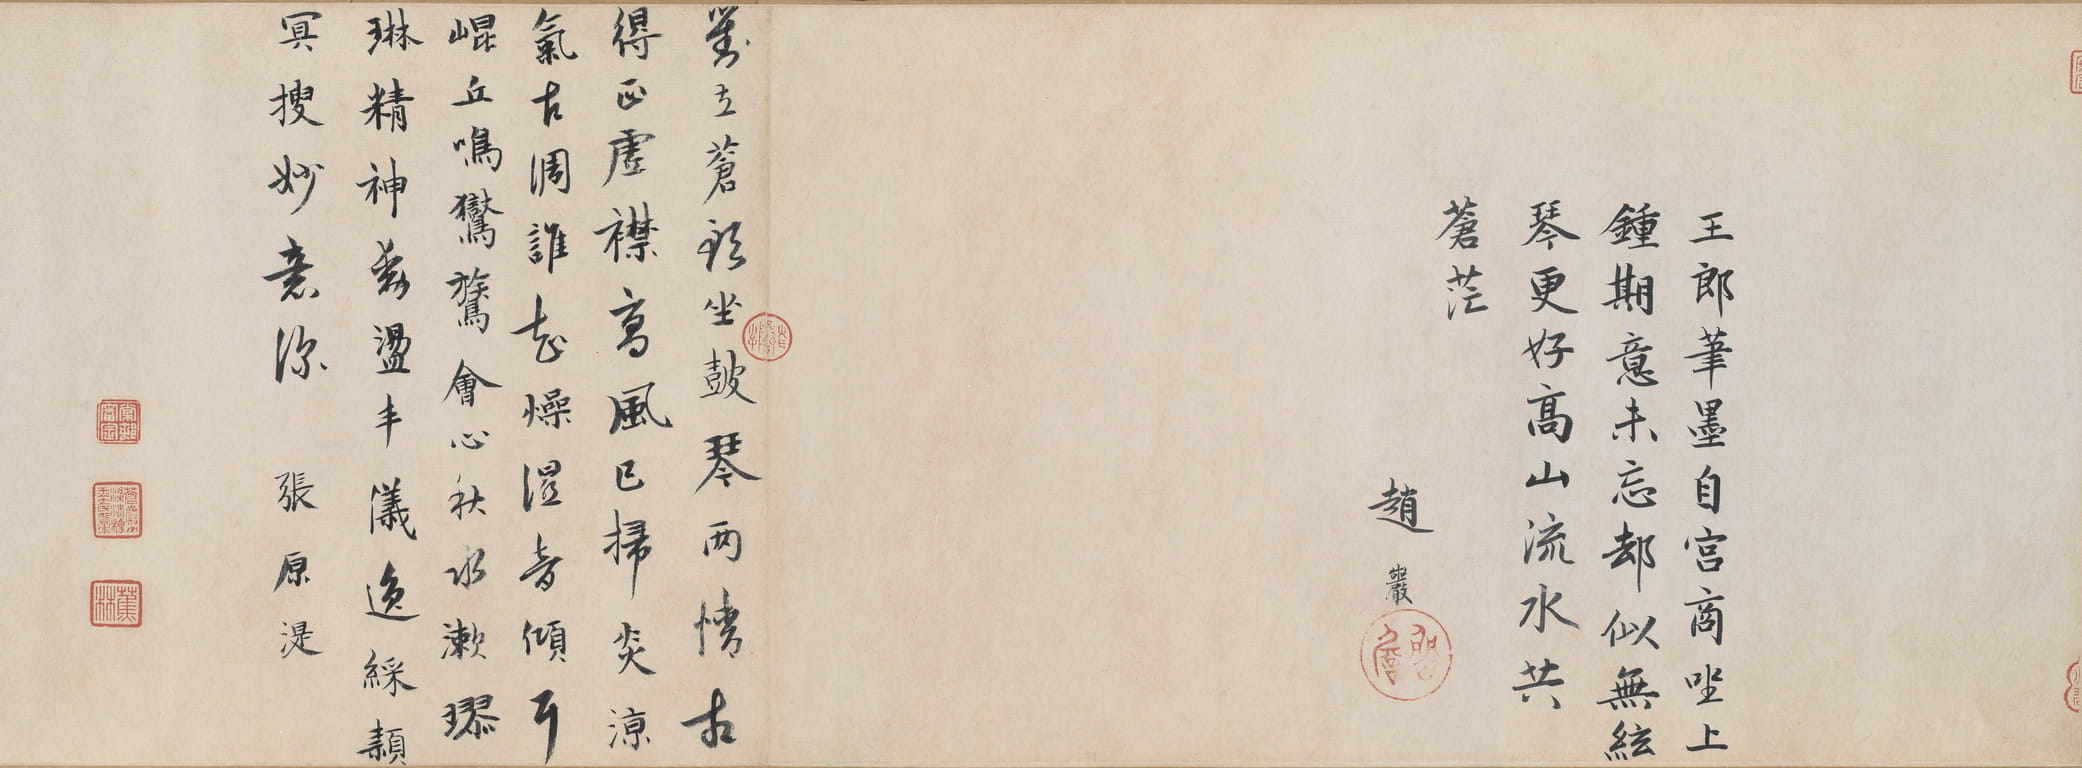 王郎筆墨自宮商坐上
鍾期意未忘却似無絃
琴更好高山流水共
蒼茫
趙巖
對立蒼頭坐鼓琴兩情相
得正虛襟高風已掃炎涼
氣古調誰知燥濕音傾耳
崐丘鳴鸑鷟會心秋水漱璆
琳精神盪丰儀逸綵穎
冥搜妙意深
張原湜
蕉林